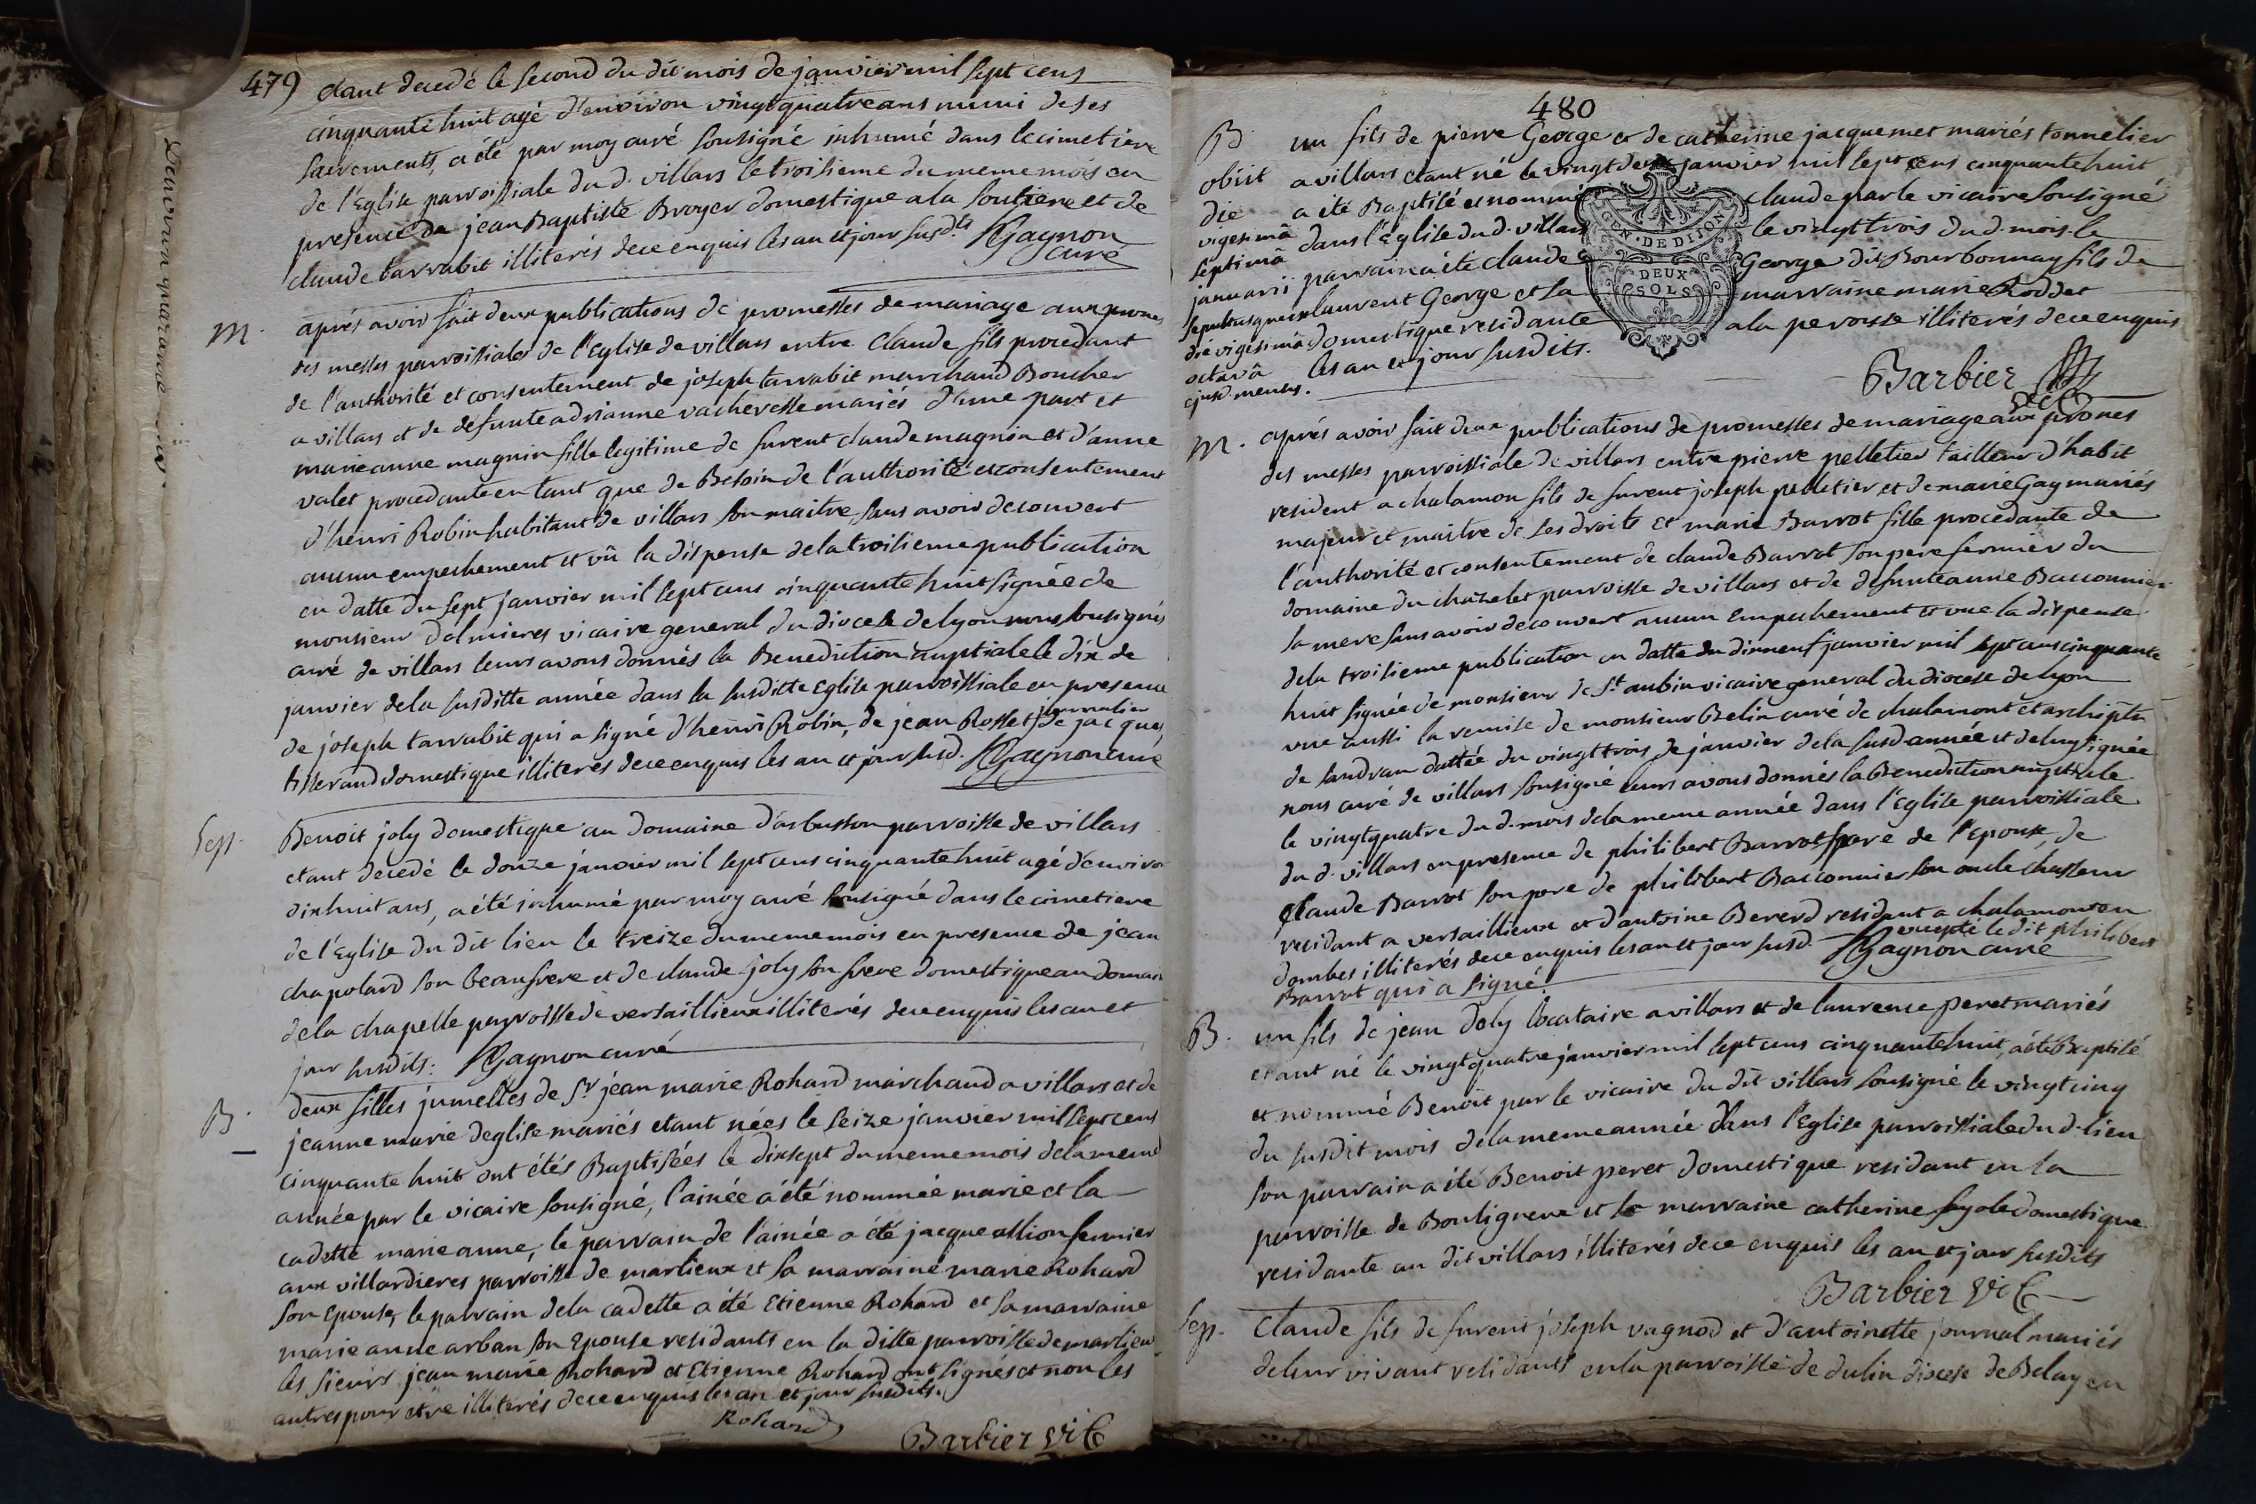 479
etant decedé le second du dit mois de janvier mil sept cens
cinquante huit agé d'environ vingt quatre ans muni de ses
sacrements, a été par moy curé sousigné inhumé dans le cimetiere
de l'Eglise parroissiale du d. villars le troisieme du meme mois en
presence de jean Baptiste Broyer domestique a la et de
claude tarrabit illiterés de ce enquis les an et jour susd.ts Gagnon
curé
M.
aprés avoir fait deux publications de promesses de mariage aux prones
des messes parroissiales de l'Eglise de villars entre Claude fils procedant
de l'authorité et consentement de joseph tarrabit marchand Boucher
a villars et de defunte adrianne vacheresse mariés d'une part et
marie anne magnin fille legitime de furent claude magnin et d'anne
valet procedante en tant que de Besoin de l'authorité et consentement
d'henri Robin habitant de villars son maitre, sans avoir decouvert
aucun empechement et vû la dispense de la troisieme publication
en datte du sept janvier mil sept cens cinquante huit signée de
monsieur dolmieres vicaire general du diocese de lyon nous sousigné
curé de villars leurs avons donnés la Benediction nuptiale le dix de
janvier de la susditte année dans la susditte Eglise parroissiale en presence
de joseph tarrabit qui a signé d'henri Robin, de jean Rosset journalier de jacque
tisserand domestique illiterés de ce enquis les an et jour susd. Gagnon curé
Sep.
Benoit joly domestique au domaine d'arbusson parroisse de villars
etant decedé le douze janvier mil sept cens cinquante huit agé d'environ
dixhuit ans, a été inhumé par moy curé sousigné dans le cimetiere
de l'Eglise du dit lieu le treize du meme mois en presence de jean
chapolard son beaufrere et de claude joly son frere domestique au domaine
de la chapelle parroisse de versaillieux illiterés de ce enquis les an et
jour susdits: Gagnon curé
B.
deux filles jumelles de Sr jean marie Rohard marchand a villars et de
jeanne marie deglise mariés etant nées le seize janvier mil sept cens
cinquante huit ont étés Baptisées le dixsept du meme mois de la meme
année par le vicaire sousigné, l'ainée a été nommée marie et la
cadette marie anne, le parrain de l'ainée a été jacque allion fermier
aux villardieres parroisse de marlieux et sa marraine marie Rohard
son Epouse, le parrain de la cadette a été Etienne Rohard et sa marraine
marie anne arban son Epouse residants en la ditte parroisse de marlieux
les sieurs jean marie Rohard et Etienne Rohard ont signés et non les
autres pour etre illiterés de ce enquis les an et jour susdits.
Rohard
Barbier vic
480
B
obiit
die
vigesimâ
septimâ
januarii
sepultusque
die vigesimâ
octavâ
ejusd. mensis.
un fils de pierre George et de catherine jacquemet mariés tonnelier
a villars etant né le vingt deux janvier mil sept cens cinquante huit
a été Baptisé et nommé claude par le vicaire sousigné
dans l'Eglise du d. villars le vingt trois du d. mois. le
parrain a été claude George dit Bourbonnay fils de
laurent George et la marraine marie Roddet
domestique residante a la pe voisse illiterés de ce enquis
les an et jour susdits.
GEN. DE DIJON
DEUX
SOLS
Barbier
M.
aprés avoir fait deux publications de promesses de mariage aux prones
des messes parroissiale de villars entre pierre pelletier tailleur d'habit
resident a chalamon fils de furent joseph pelletier et de marie Gay mariés
majeur et maitre de ses droits et marie Barrot fille procedante de
l'authorité et consentement de claude Barrot son pere fermier du
domaine du chazelet parroisse de villars et de defunte anne Bacconnier
sa mere sans avoir decouvert aucun Empechement et vue la dispense
de la troisieme publication en datte du dixneuf janvier mil sept cens cinquante
huit signée de monsieur de St aubin vicaire general du diocese de lyon
vue aussi la remise de monsieur Belin curé de chalamont et archiptre
de sandran dattée du vingt trois de janvier de la susd année et de luy signée
nous curé de villars sousigné leurs avons donnés la Benediction nuptiale
le vingtquatre du d. mois de la meme année dans l'Eglise parroissiale
du d. villars en presence de philibert Barrot frere de l'Epouse, de
claude Barrot son pere de philibert Bacconnier son oncle chasseur
residant a versaillieux et d'antoine Bererd residant a chalamont en
dombes illiterés de ce enquis les an et jour susd. excepté le dit philibert
Barrot qui a signé. Gagnon curé
B.
un fils de jean Joly locataire a villars et de laurence peret mariés
etant né le vingtquatre janvier mil sept cens cinquante huit, a été Baptisé
et nommé Benoit par le vicaire du dit villars sousigné le vingtcinq
du susdit mois de la meme année dans l'Eglise parroissiale du d. lieu
son parrain a été Benoit peret domestique residant en la
parroisse de Bouligneux et la marraine catherine fayole domestique
residante au dit villars illiterés de ce enquis les an et jour susdits
Barbier vic
Sep.
Claude fils de furent joseph vagnod et d'antoinette journal mariés
de leur vivant residants en la parroisse de dulin diocese de Belay en